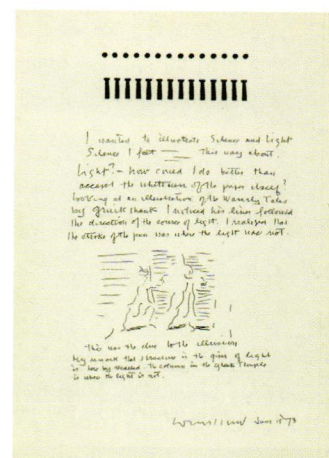 I wanted to illustrate Silence and Light
Silence I felt this way about.
Light? – How could I do better than
accept the whiteness of the paper itself?
Looking at an illustration of the Waverly Tales
by Cruikshank I noticed his lines followed
the direction of the source of light. I realized that
the stroke of the pen was where the light was not.
this was the clue to the illusion
My remark that structure is the giver of light
is by the column in the Greek Temple
is where the light is not.
June 15 73